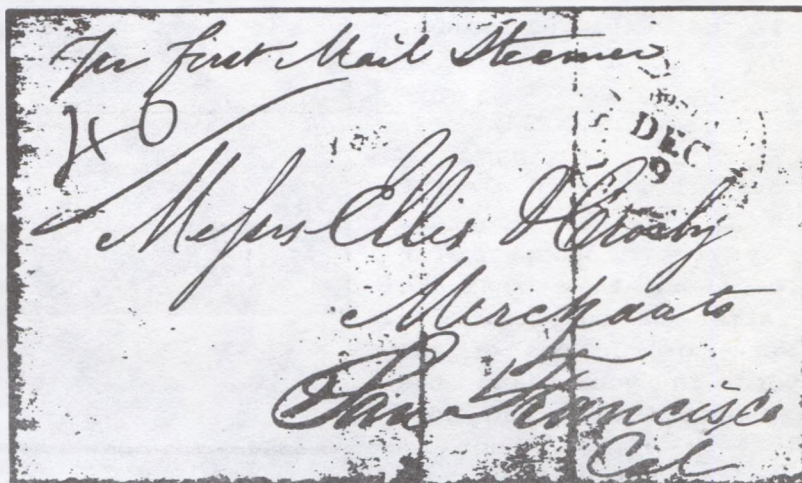 Per first Mail Steamer
40
DEC
9
Messrs Ellis & Crosby
Merchants
San Francisco
Cal